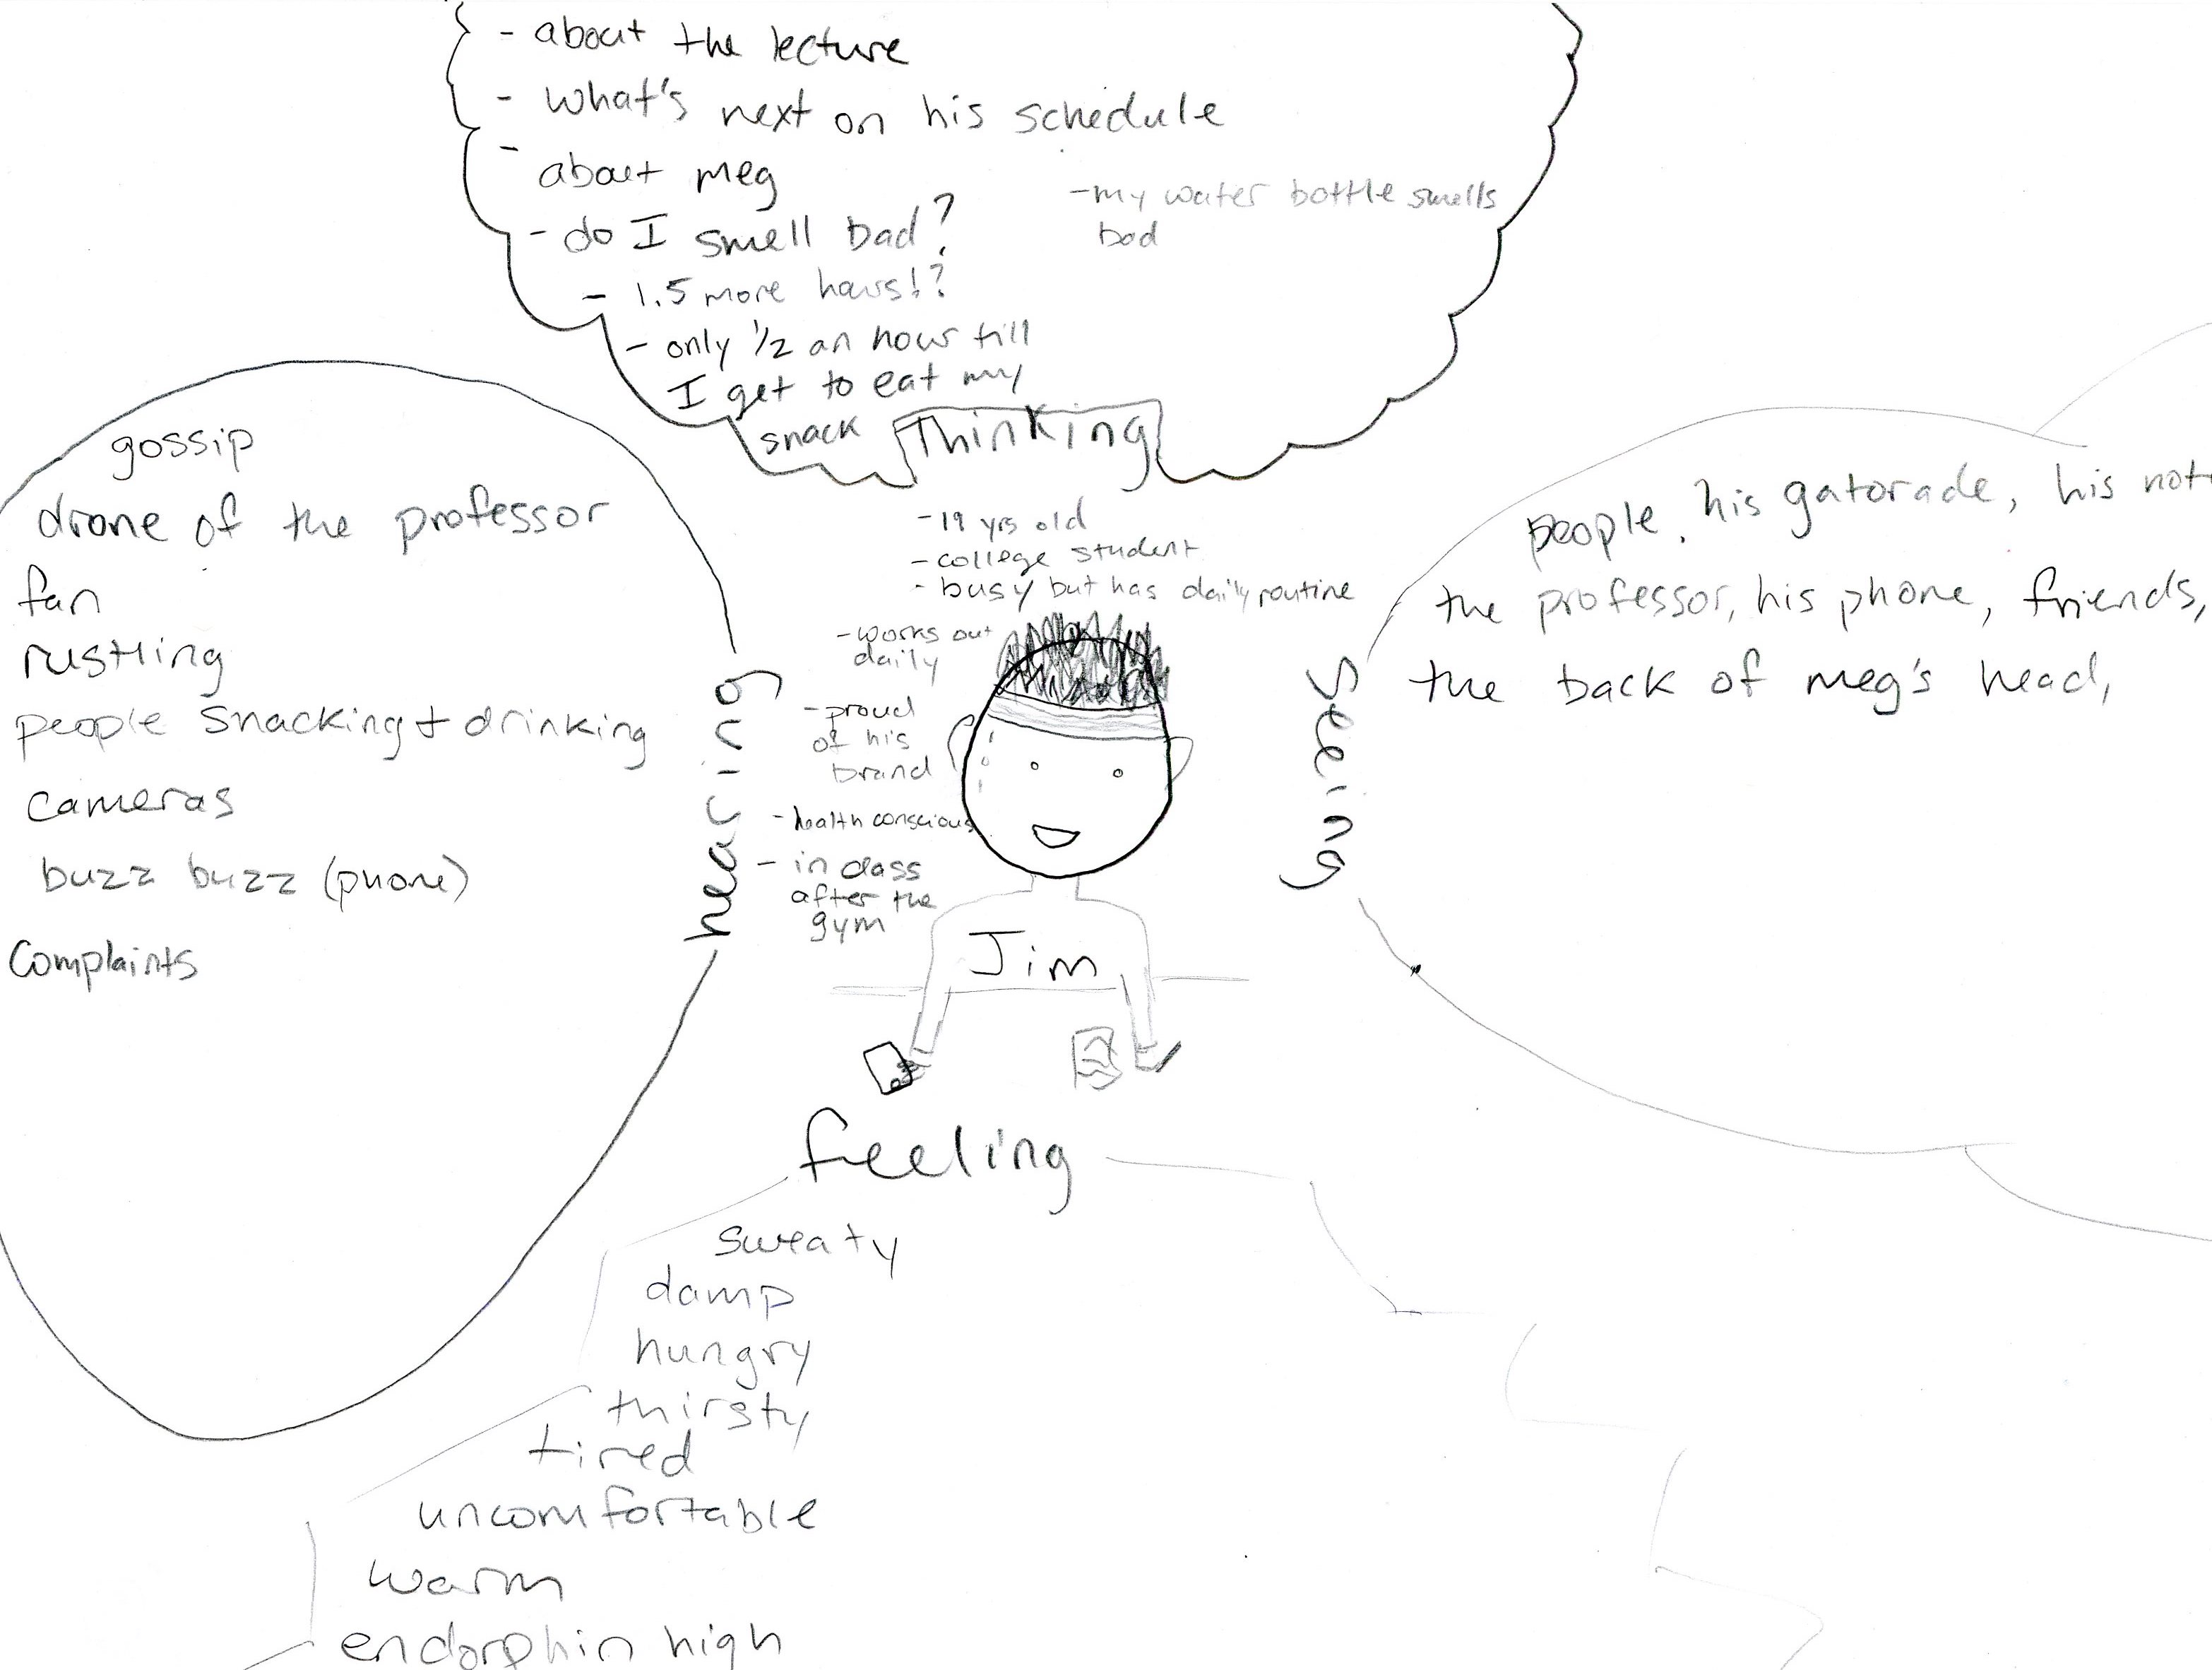 - about the lecture
- what's next on his schedule
- about meg
- my water bottle smells
bad
- do I smell bad?
- 1.5 more hours!?
- only 1/2 an hour till
I get to eat my
snack
Thinking
gossip
drone of the professor
fan
rustling
people snacking + drinking
cameras
buzz buzz (phone)
Complaints
hearing
- 19 yrs old
- college student
- busy but has daily routine
- works out
daily
- proud
of his
brand
- health conscious
- in class
after the
gym
Jim
seeing
people, his gatorade, his not
the professor, his phone, friends,
the back of meg's head,
feeling
sweaty
damp
hungry
thirsty
tired
uncomfortable
warm
endorphin high